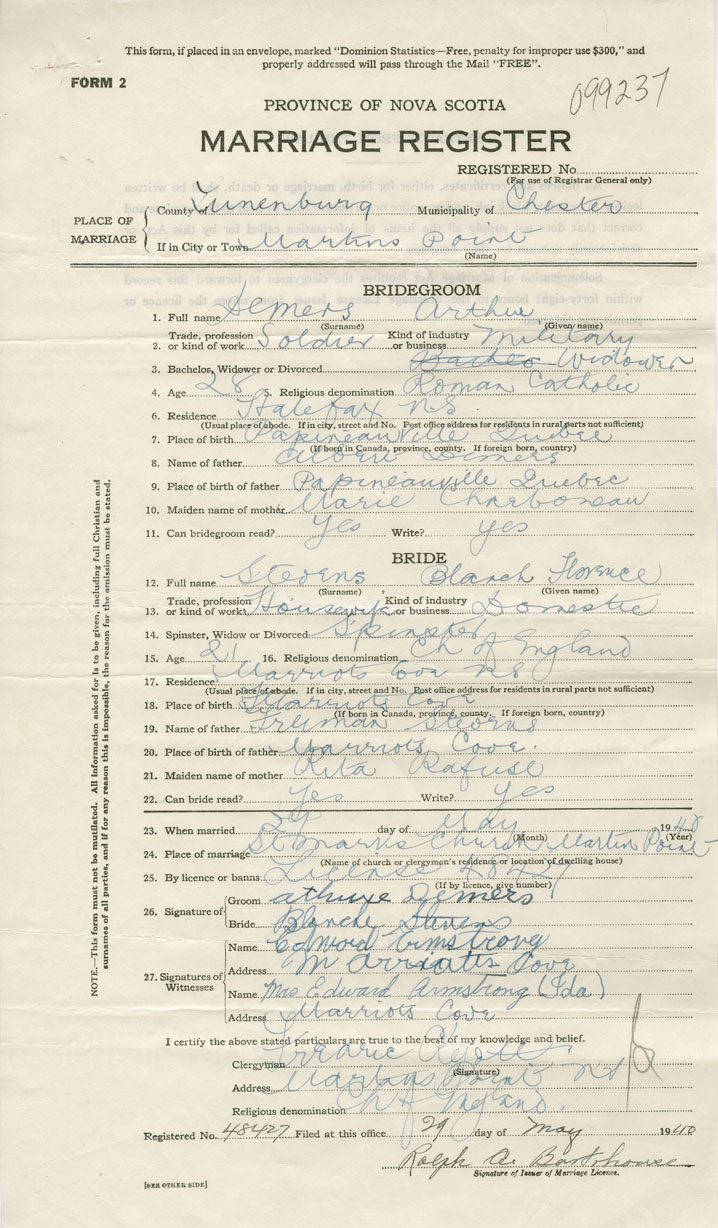 This form, if placed in an envelope, marked "Dominion Statistics—Free, penalty for improper use $300," and
properly addressed will pass through the Mail "FREE".
FORM 2
099237
PROVINCE OF NOVA SCOTIA
MARRIAGE REGISTER
REGISTERED No.
(For use of Registrar General only)
PLACE OF MARRIAGE
County of Lunenburg Municipality of Chester
If in City or Town Martins Point
(Name)
BRIDEGROOM
1. Full name Demers Arthur
(Surname) (Given name)
2. Trade, profession or kind of work Soldier Kind of industry or business Military
3. Bachelor, Widower or Divorced Widower
4. Age 28 5. Religious denomination Roman Catholic
6. Residence Halefax NS.
(Usual place of abode. If in city, street and No. Post office address for residents in rural parts not sufficient)
7. Place of birth Papineauville Quebec
(If born in Canada, province, county. If foreign born, country)
8. Name of father Albert Demers
9. Place of birth of father Papineauville Quebec
10. Maiden name of mother Marie Charboneau
11. Can bridegroom read? Yes Write? yes
BRIDE
12. Full name Stevens Blanch Florence
(Surname) (Given name)
13. Trade, profession or kind of work Housewife Kind of industry or business Domestic
14. Spinster, Widow or Divorced Spinster
15. Age 21 16. Religious denomination Ch of England
17. Residence Marriots Cove NS
(Usual place of abode. If in city, street and No. Post office address for residents in rural parts not sufficient)
18. Place of birth Marriots Cove
(If born in Canada, province, county. If foreign born, country)
19. Name of father Freeman Stevens
20. Place of birth of father Marriots Cove.
21. Maiden name of mother Rita Rafuse
22. Can bride read? Yes Write? Yes
23. When married 29 day of May 1940
(Month) (Year)
24. Place of marriage St Marks Church Martin Point
(Name of church or clergyman's residence or location of dwelling house)
25. By licence or banns License 48427
(If by licence, give number)
26. Signature of
Groom athure Demers
Bride Blanche Stevens
27. Signatures of Witnesses
Name Edword Armstrong
Address Marriatts Cove
Name Mrs Edward Armstrong (Ida)
Address Marriots Cove
I certify the above stated particulars are true to the best of my knowledge and belief.
Clergyman Fredric
(Signature)
Address Martins Point
Religious denomination Ch of England.
Registered No. 48427 Filed at this office 29 day of May 1940
Ralph A. Barkhouse
Signature of Issuer of Marriage Licence.
[SEE OTHER SIDE]
NOTE.—This form must not be mutilated. All information asked for is to be given, including full Christian and
surnames of all parties, and if for any reason this is impossible, the reason for the omission must be stated.